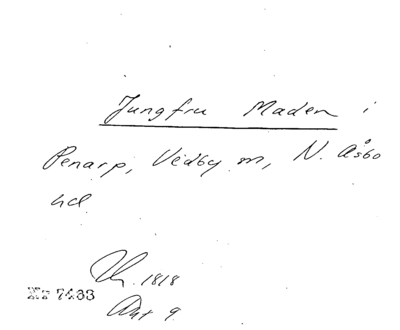 Jungfru Maden i
Penarp, Vedby m, N. Åsbo
hd
1818
Nr 7433
Akt 9.